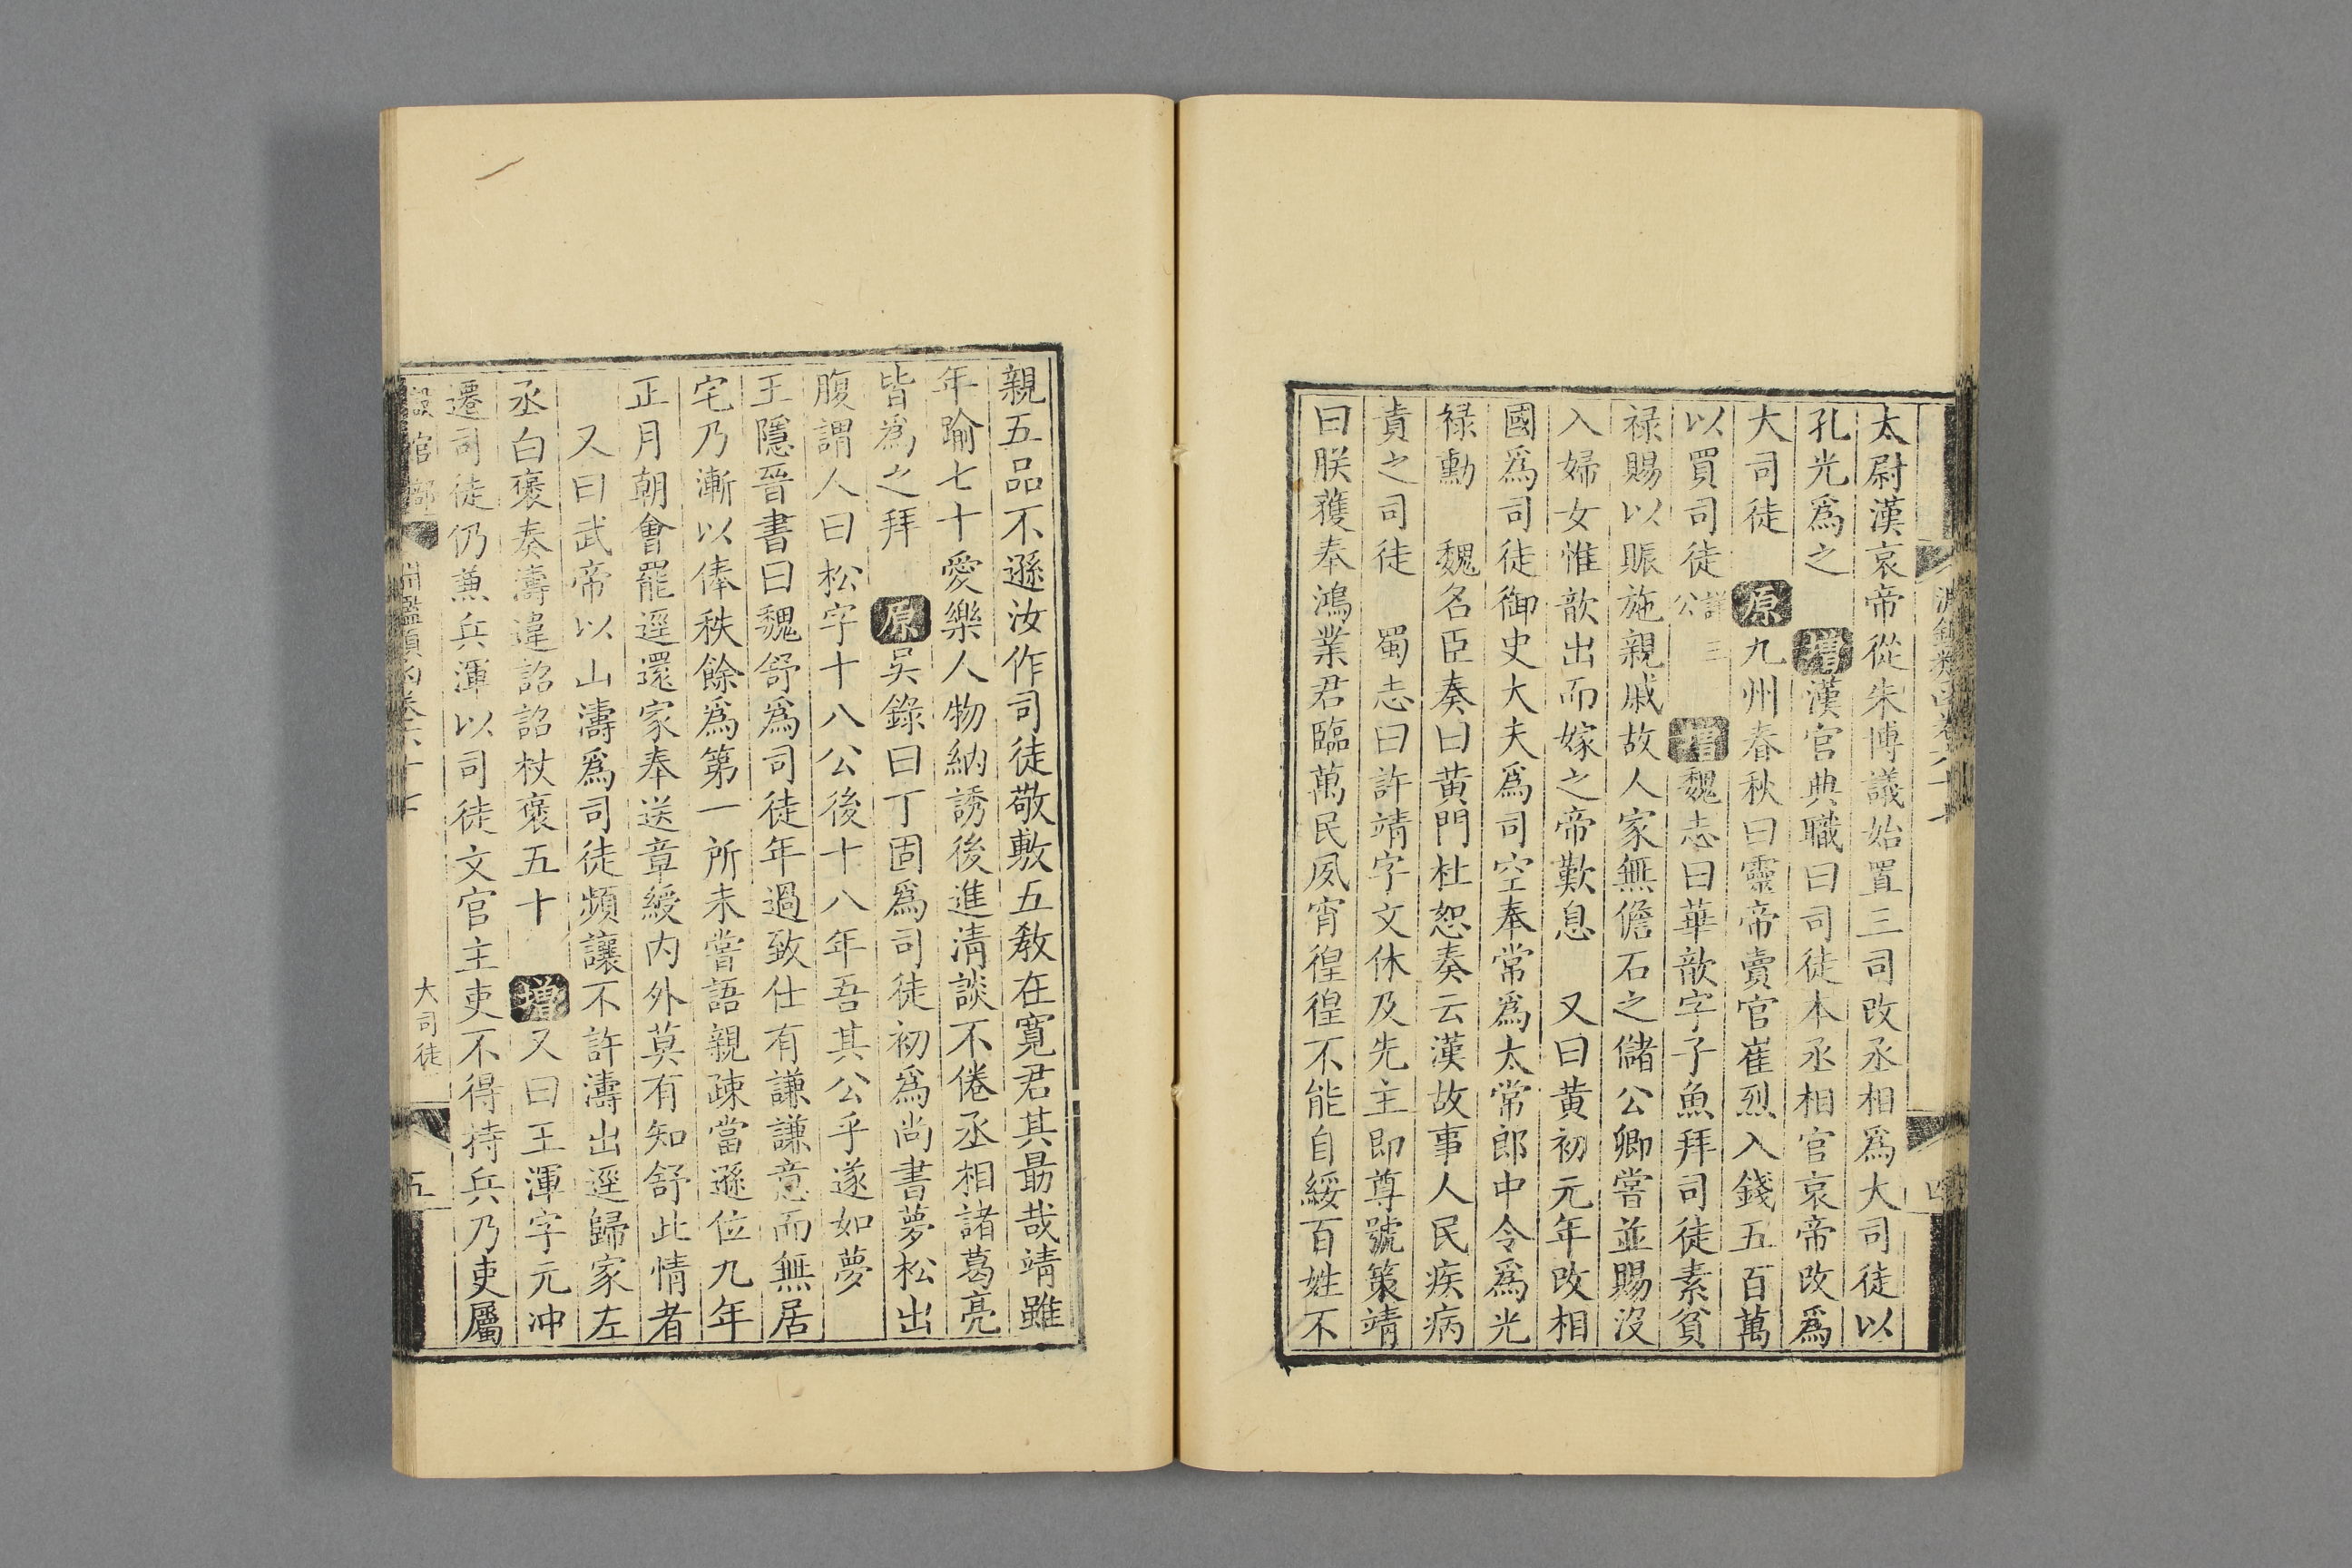 太尉漢哀帝從朱博議始置三司改丞相爲大司徒以
孔光爲之 增漢官典職曰司徒本丞相官哀帝改爲
大司徒 原九州春秋曰靈帝賣官崔烈入錢五百萬
以買司徒詳三公 增魏志曰華歆字子魚拜司徒素貧
禄賜以賑施親戚故人家無儋石之儲公卿嘗並賜沒
入婦女惟歆出而嫁之帝歎息 又曰黄初元年改相
國爲司徒御史大夫爲司空奉常爲太常郎中令爲光
禄勳 魏名臣奏曰黄門杜恕奏云漢故事人民疾病
責之司徒 蜀志曰許靖字文休及先主即尊號策靖
曰朕獲奉鴻業君臨萬民夙宵徨徨不能自綏百姓不
親五品不遜汝作司徒敬敷五敎在寛君其勗哉靖雖
年踰七十愛樂人物納誘後進清談不倦丞相諸葛亮
皆爲之拜 原吳錄曰丁固爲司徒初爲尚書夢松出
腹謂人曰松字十八公後十八年吾其公乎遂如夢
王隱晉書曰魏舒爲司徒年過致仕有謙謙意而無居
宅乃漸以俸秩餘爲第一所未嘗語親疎當遜位九年
正月朝會罷逕還家奉送章綬内外莫有知舒此情者
又曰武帝以山濤爲司徒頻讓不許濤出逕歸家左
丞白褒奏濤違詔詔杖褒五十 增又曰王渾字元冲
遷司徒仍兼兵渾以司徒文官主吏不得持兵乃吏屬
設官部
淵鑑類函卷六十七
大司徒
五